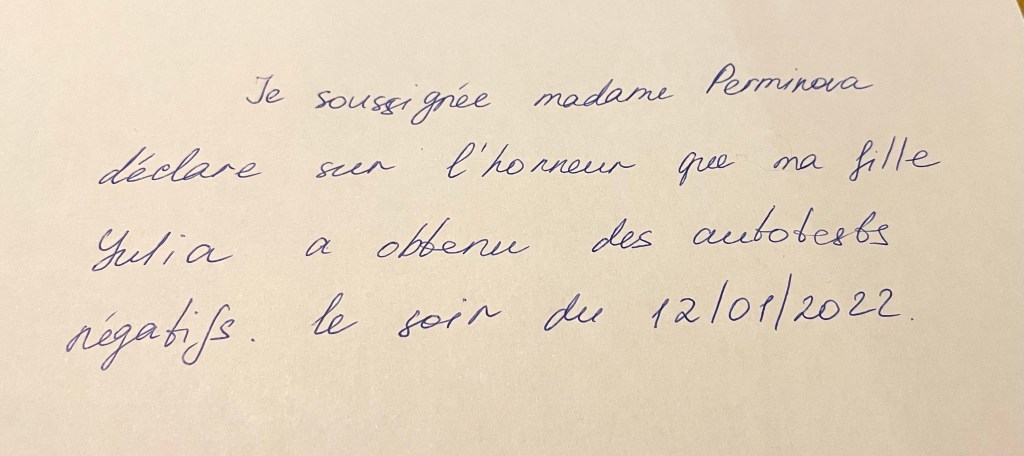 Je soussignée madame Perminova
déclare sur l'honneur que ma fille
Yulia a obtenu des autotests
négatifs. le soir du 12/01/2022.